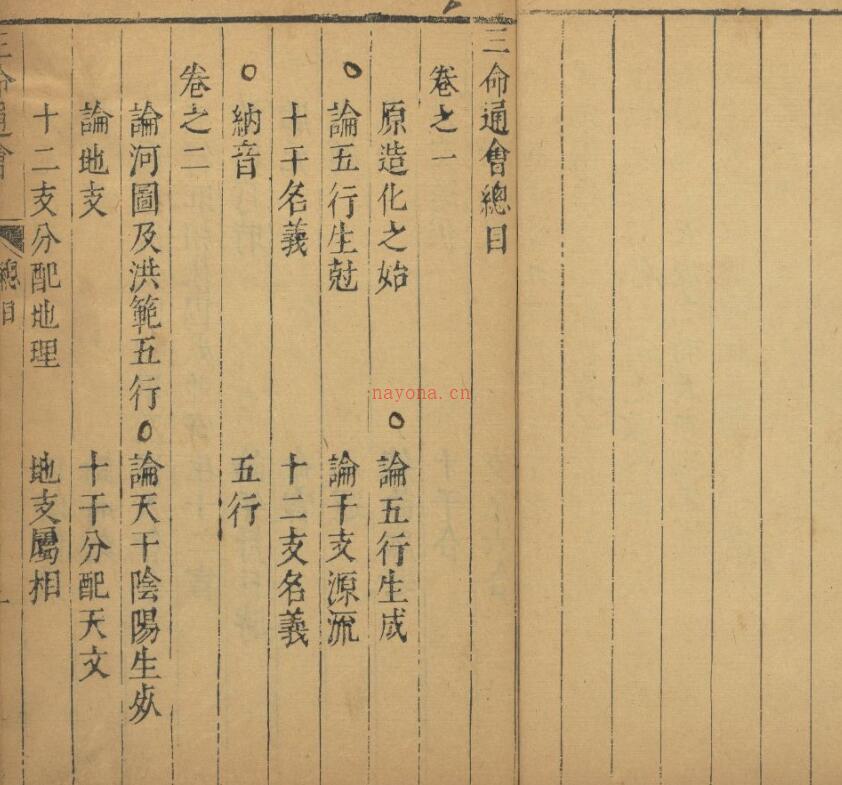 三命通會總目
卷之一
原造化之始 ○論五行生成
○論五行生尅 論干支源流
十干名義 十二支名義
○納音 五行
卷之二
論河圖及洪範五行 ○論天干陰陽生死
論地支 十干分配天文
十二支分配地理 地支屬相
三命通會 總目 一
nayona.cn